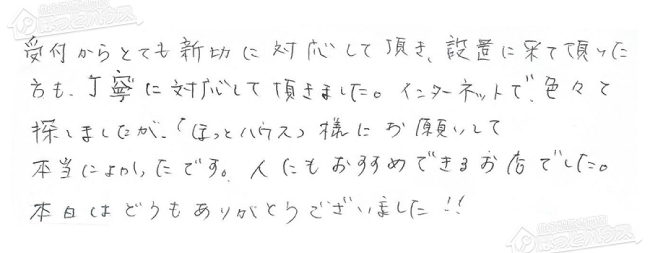 受付からとても新切に対応して頂き、設置に来て頂いた
方も、丁寧に対応して頂きました。インターネットで、色々と
探しましたが、「ほっとハウス」様にお願いして
本当によかったです。人にもおすすめできるお店でした。
本日はどうもありがとうございました!!
ほっとハウス
ほっとハウス